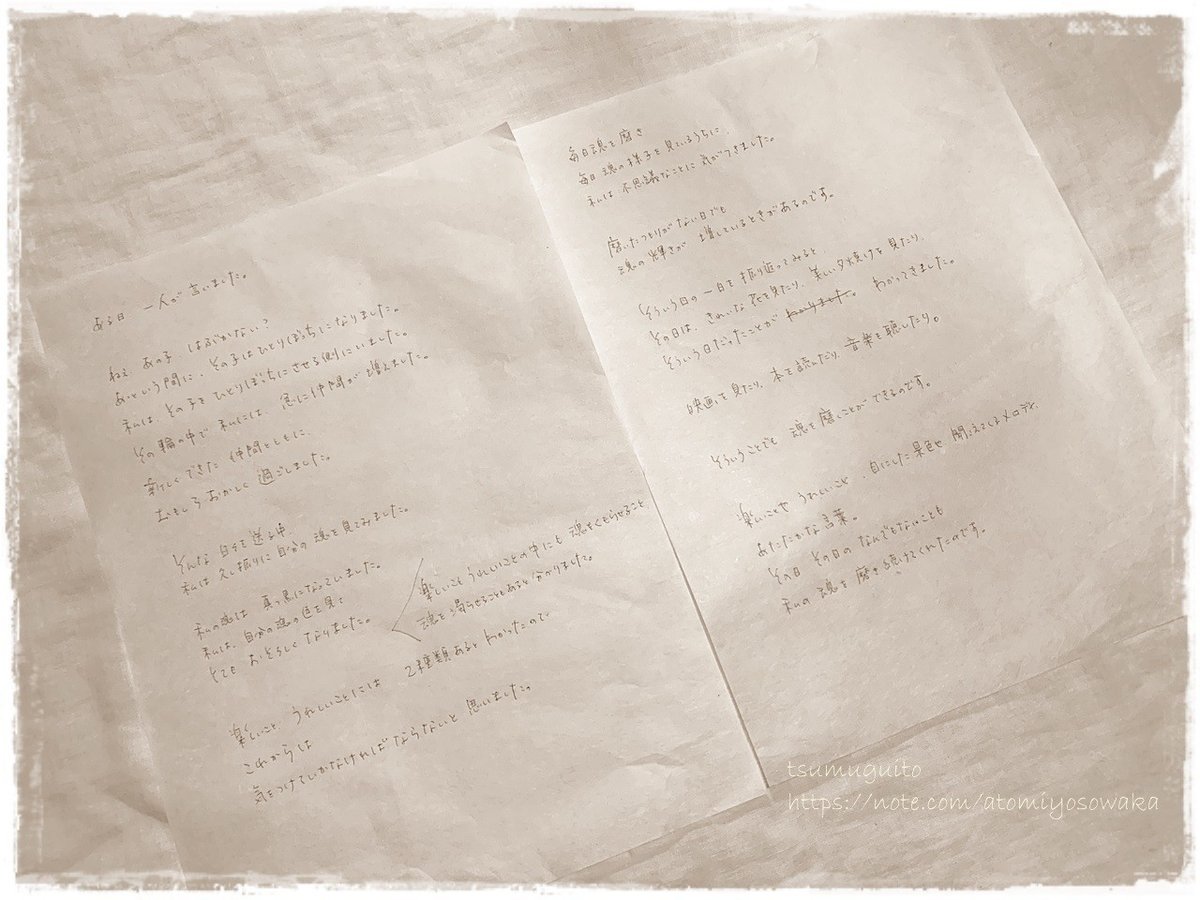 ある日 一人が言いました。
ねぇ、あの子 はぶかない?
あっという間に、その子はひとりぼっちになりました。
私は、その子をひとりぼっちにさせる側にいました。
その輪の中で 私には、急に仲間が増えました。
新しくできた 仲間とともに、
おもしろおかしく過ごしました。
そんな 日々を送る中、
私は久し振りに自分の魂を見てみました。
私の魂は 真っ黒になっていました。
私は、自分の魂の色を見て
とても おそろしくなりました。
楽しいこと うれしいことの中にも 魂をくもらせること
魂を濁らせることもあると分かりました。
楽しいこと、うれしいことには 2種類あると わかったので
これからは
気をつけていかなければならないと思いました。
毎日魂を磨き
毎日魂の様子を見ているうちに、
私は不思議なことに気がつきました。
磨いたつもりがない日でも
魂の輝きが 増しているときがあるのです。
そういう日の一日を振り返ってみると
その日は、きれいな花を見たり、美しい夕焼けを見たり、
そういう日だったことが わかりました。 わかってきました。
映画を見たり、本を読んだり、音楽を聴いたり。
そういうことでも 魂を磨くことができるのです。
楽しいことや うれしいこと、目にした景色や 聞こえてくるメロディ、
あたたかな言葉。
その日 その日の なんでもないことも
私の 魂を 磨き続けてくれたのです。
tsumuguito
https://note.com/atomiyosowaka